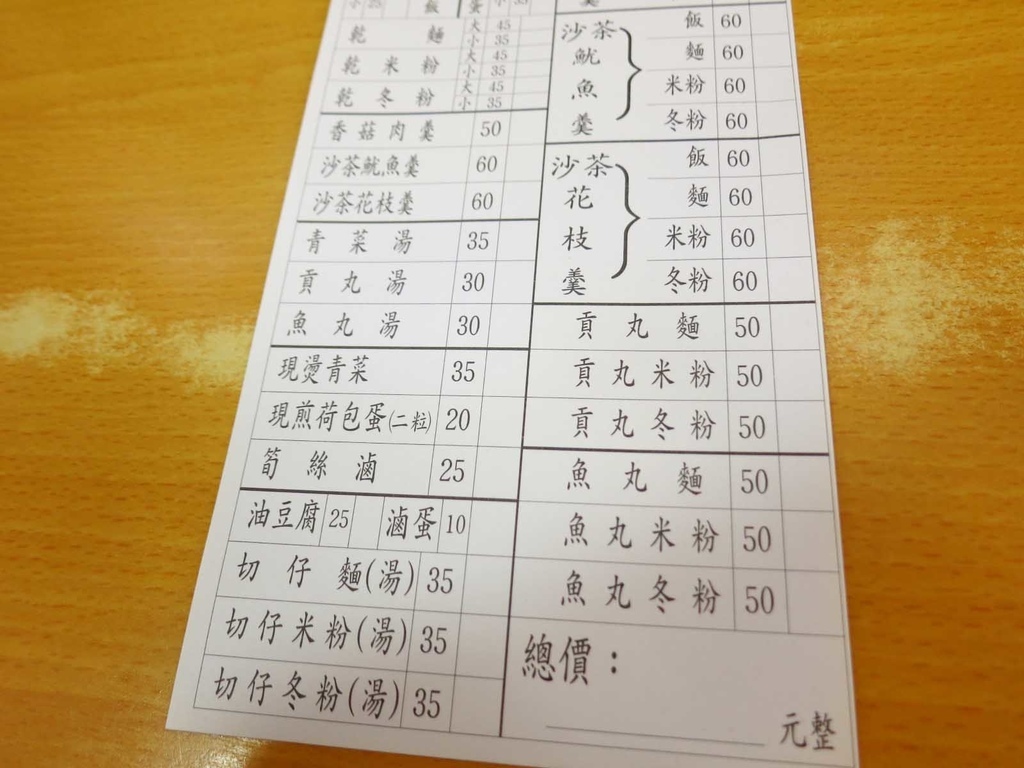 小 25 飯 蛋 小 35
乾麵 大 45
小 35
乾米粉 大 45
小 35
乾冬粉 大 45
小 35
香菇肉羹 50
沙茶魷魚羹 60
沙茶花枝羹 60
青菜湯 35
貢丸湯 30
魚丸湯 30
現燙青菜 35
現煎荷包蛋(二粒) 20
筍絲滷 25
油豆腐 25 滷蛋 10
切仔麵(湯) 35
切仔米粉(湯) 35
切仔冬粉(湯) 35
羹
沙茶魷魚羹
飯 60
麵 60
米粉 60
冬粉 60
沙茶花枝羹
飯 60
麵 60
米粉 60
冬粉 60
貢丸麵 50
貢丸米粉 50
貢丸冬粉 50
魚丸麵 50
魚丸米粉 50
魚丸冬粉 50
總價：
元整